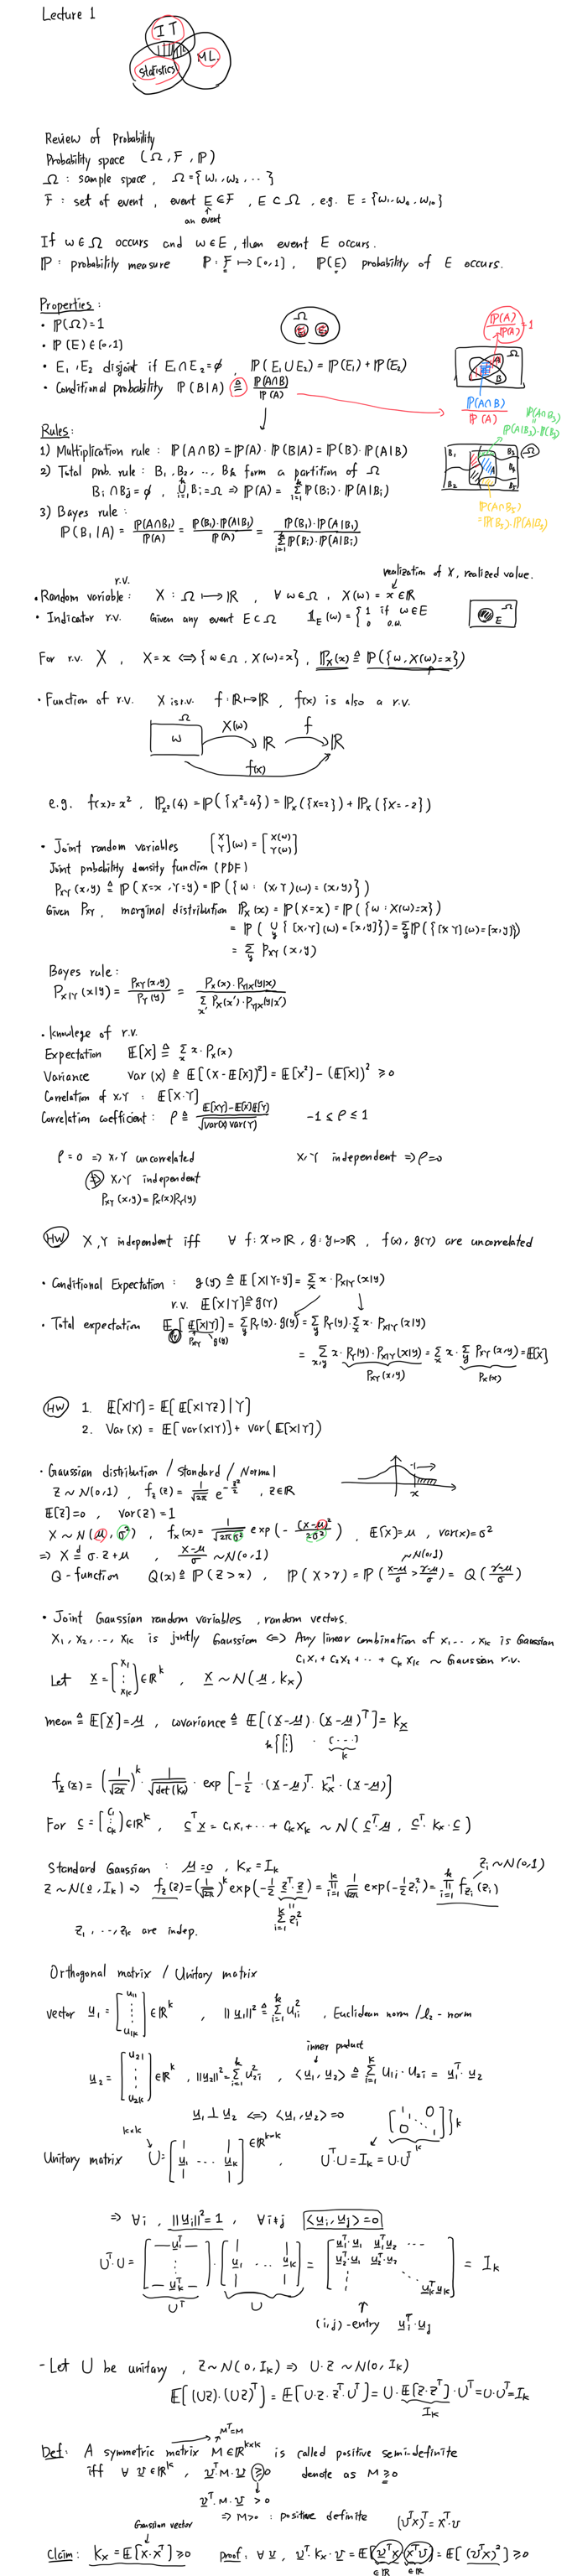 Lecture 1
IT
Statistics
ML
Review of Probability
Probability space (Ω, F, ℙ)
Ω : sample space, Ω={ω₁, ω₂, ...}
F : set of event, event E∈F, E⊂Ω, e.g. E = {ω₁, ω₄, ω₁₀}
an event
If ω∈Ω occurs and ω∈E, then event E occurs.
ℙ : probability measure ℙ: F ↦ [0,1], ℙ(E) probability of E occurs.
Properties :
• ℙ(Ω)=1
• ℙ(E)∈[0,1]
• E₁, E₂ disjoint if E₁∩E₂=ϕ, ℙ(E₁∪E₂)=ℙ(E₁)+ℙ(E₂)
• Conditional probability ℙ(B|A) ≜ ℙ(A∩B)/ℙ(A)
ℙ(A)/ℙ(A)=1
ℙ(A∩B)/ℙ(A)
Rules:
1) Multiplication rule : ℙ(A∩B)=ℙ(A)·ℙ(B|A)=ℙ(B)·ℙ(A|B)
2) Total prob. rule : B₁, B₂, ..., Bₖ form a partition of Ω
Bᵢ∩Bⱼ=ϕ, ∪ᵢ₌₁ᵏ Bᵢ=Ω ⇒ ℙ(A)= Σᵢ₌₁ᵏ ℙ(Bᵢ)·ℙ(A|Bᵢ)
3) Bayes rule :
ℙ(B₁|A) = ℙ(A∩B₁)/ℙ(A) = ℙ(B₁)·ℙ(A|B₁)/ℙ(A) = ℙ(B₁)·ℙ(A|B₁)/Σᵢ₌₁ᵏ ℙ(Bᵢ)·ℙ(A|Bᵢ)
r.v.
realization of X, realized value.
• Random variable : X : Ω ↦ ℝ, ∀ω∈Ω, X(ω) = x∈ℝ
• Indicator r.v. Given any event E⊂Ω 𝟙_E(ω)={1 if ω∈E
0 o.w.
For r.v. X, X=x ⇔ {ω∈Ω, X(ω)=x}, ℙ_X(x) ≜ ℙ({ω, X(ω)=x})
• Function of r.v. X is r.v. f:ℝ↦ℝ, f(x) is also a r.v.
Ω
ω X(ω) ℝ f ℝ
f(x)
e.g. f(x)=x², ℙ_X²(4)=ℙ({X²=4})=ℙ_X({X=2})+ℙ_X({X=-2})
• Joint random variables [X Y](ω)=[X(ω) Y(ω)]
Joint probability density function (PDF)
P_XY(x,y) ≜ ℙ(X=x, Y=y)=ℙ({ω : (X,Y)(ω)=(x,y)})
Given P_XY, marginal distribution ℙ_X(x)=ℙ(X=x)=ℙ({ω : X(ω)=x})
= ℙ(∪_y {[X,Y](ω)=[x,y]})=Σ_y ℙ({[X Y](ω)=[x,y]})
= Σ_y P_XY(x,y)
Bayes rule :
P_X|Y(x|y) = P_XY(x,y)/P_Y(y) = P_X(x)·P_Y|X(y|x)/Σ_x' P_X(x')·P_Y|X(y|x')
• knowlege of r.v.
Expectation 𝔼[X] ≜ Σ_x x·P_X(x)
Variance Var(x) ≜ 𝔼[(X-𝔼[X])²]=𝔼[X²]-(𝔼[X])² ≥0
Correlation of X,Y : 𝔼[X·Y]
Correlation coefficient : ρ ≜ (𝔼[XY]-𝔼[X]𝔼[Y])/√(var(X) var(Y)) -1≤ρ≤1
ρ=0 ⇒ X,Y uncorrelated X,Y independent ⇒ρ=0
⇏ X,Y independent
P_XY(x,y)=P_X(x)P_Y(y)
HW X,Y independent iff ∀ f:X↦ℝ, g:Y↦ℝ, f(x), g(Y) are uncorrelated
• Conditional Expectation : g(y) ≜ 𝔼[X|Y=y]=Σ_x x·P_X|Y(x|y)
r.v. 𝔼[X|Y]≜g(Y)
• Total expectation 𝔼_Y[𝔼[X|Y]]=Σ_y P_Y(y)·g(y)=Σ_y P_Y(y)·Σ_x x·P_X|Y(x|y)
P_X|Y g(y)
= Σ_x,y x·P_Y(y)·P_X|Y(x|y)=Σ_x x·Σ_y P_XY(x,y)=𝔼[X]
P_XY(x,y) P_X(x)
HW 1. 𝔼[X|Y]=𝔼[𝔼[X|YZ]|Y]
2. Var(x)=𝔼[var(X|Y)]+Var(𝔼[X|Y])
• Gaussian distribution / Standard / Normal
Z~N(0,1), f_z(z)=1/√2π e^(-z²/2), z∈ℝ
𝔼[Z]=0, Var(Z)=1
X~N(μ,σ²), f_x(x)=1/√(2πσ²) exp(-(x-μ)²/2σ²), 𝔼[X]=μ, var(x)=σ²
⇒ X =ᵈ σ·Z+μ, (X-μ)/σ ~N(0,1) ~N(0,1)
Q-function Q(x)≜ℙ(Z>x), ℙ(X>γ)=ℙ((X-μ)/σ > (γ-μ)/σ)=Q((γ-μ)/σ)
• Joint Gaussian random variables, random vectors.
X₁, X₂, ..., Xₖ is jointly Gaussian ⇔ Any linear combination of X₁...Xₖ is Gaussian
C₁X₁+C₂X₂+···+CₖXₖ ~ Gaussian r.v.
Let X=[X₁ ⋮ Xₖ]∈ℝᵏ, X~N(μ, Kₓ)
mean≜𝔼[X]=μ, covariance≜𝔼[(X-μ)·(X-μ)ᵀ]=Kₓ
k{[⋮] · (...) k
fₓ(x)=(1/√2π)ᵏ · 1/√det(Kₓ) · exp[-½·(X-μ)ᵀ·Kₓ⁻¹·(X-μ)]
For C=[C₁ ⋮ Cₖ]∈ℝᵏ, CᵀX=C₁X₁+···+CₖXₖ~N(Cᵀμ, Cᵀ·Kₓ·C)
Standard Gaussian : μ=0, Kₓ=Iₖ Zᵢ~N(0,1)
Z~N(0,Iₖ)⇒ f_z(z)=(1/√2π)ᵏ exp(-½ zᵀ·z)=∏ᵢ₌₁ᵏ 1/√2π exp(-½zᵢ²)=∏ᵢ₌₁ᵏ f_zᵢ(zᵢ)
Σᵢ₌₁ᵏ zᵢ²
Z₁, ..., Zₖ are indep.
Orthogonal matrix / Unitary matrix
vector u₁=[u₁₁ ⋮ u₁ₖ]∈ℝᵏ, ||u₁||²≜Σᵢ₌₁ᵏ u₁ᵢ², Euclidean norm / l₂-norm
inner product
u₂=[u₂₁ ⋮ u₂ₖ]∈ℝᵏ, ||u₂||²=Σᵢ₌₁ᵏ u₂ᵢ², <u₁,u₂>≜Σᵢ₌₁ᵏ u₁ᵢ·u₂ᵢ=u₁ᵀ·u₂
u₁⊥u₂ ⇔ <u₁,u₂>=0
k×k
Unitary matrix U=[u₁ ... uₖ]∈ℝᵏˣᵏ, Uᵀ·U=Iₖ=U·Uᵀ
⇒ ∀i, ||uᵢ||²=1, ∀i≠j <uᵢ,uⱼ>=0
Uᵀ·U=[u₁ᵀ ⋮ uₖᵀ]·[u₁ ... uₖ]=[u₁ᵀ·u₁ u₁ᵀu₂ ... u₂ᵀ·u₁ u₂ᵀ·u₂ ⋮ ⋱ uₖᵀuₖ]=Iₖ
Uᵀ U
(i,j)-entry uᵢᵀ·uⱼ
- Let U be unitary, Z~N(0,Iₖ)⇒U·Z~N(0,Iₖ)
𝔼[(UZ)·(UZ)ᵀ]=𝔼[U·Z·Zᵀ·Uᵀ]=U·𝔼[Z·Zᵀ]·Uᵀ=U·Uᵀ=Iₖ
Iₖ
Mᵀ=M
Def: A symmetric matrix M∈ℝᵏˣᵏ is called positive semi-definite
iff ∀ v∈ℝᵏ, vᵀ·M·v ≥0 denote as M≥0
vᵀ·M·v >0
⇒ M>0 : positive definite (vᵀx)=xᵀ·v
Gaussian vector
Claim: Kₓ=𝔼[X·Xᵀ]≥0 proof: ∀v, vᵀ·Kₓ·v=𝔼[vᵀX Xᵀv]=𝔼[(vᵀX)²]≥0
∈ℝ ∈ℝ